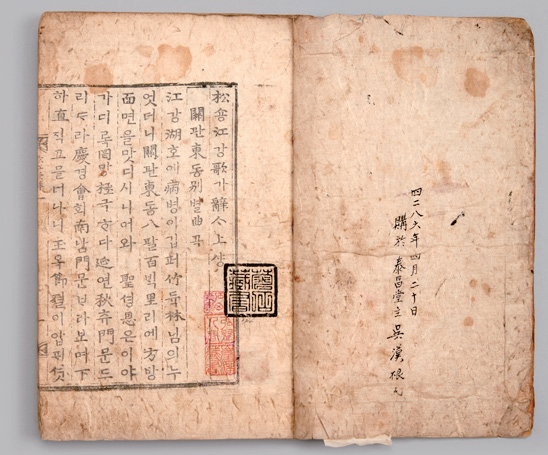 四二八六年四月二十日
購於泰昌堂主 吳漢根
松숑江강歌가辭ᄉᆞ上샹
關관東동別별曲곡
江강湖호애病병이깁퍼竹듁林님의누
엇더니關관東동八팔百ᄇᆡᆨ里리예方방
面면을맛디시니어와 聖셩恩은이야
가디록罔망極극ᄒᆞ다延연秋츄門문드
리ᄃᆞ라慶경會회南남門문ᄇᆞ라보며下
하直직고믈너나니玉옥節졀이압ᄑᆡ셧
藏書